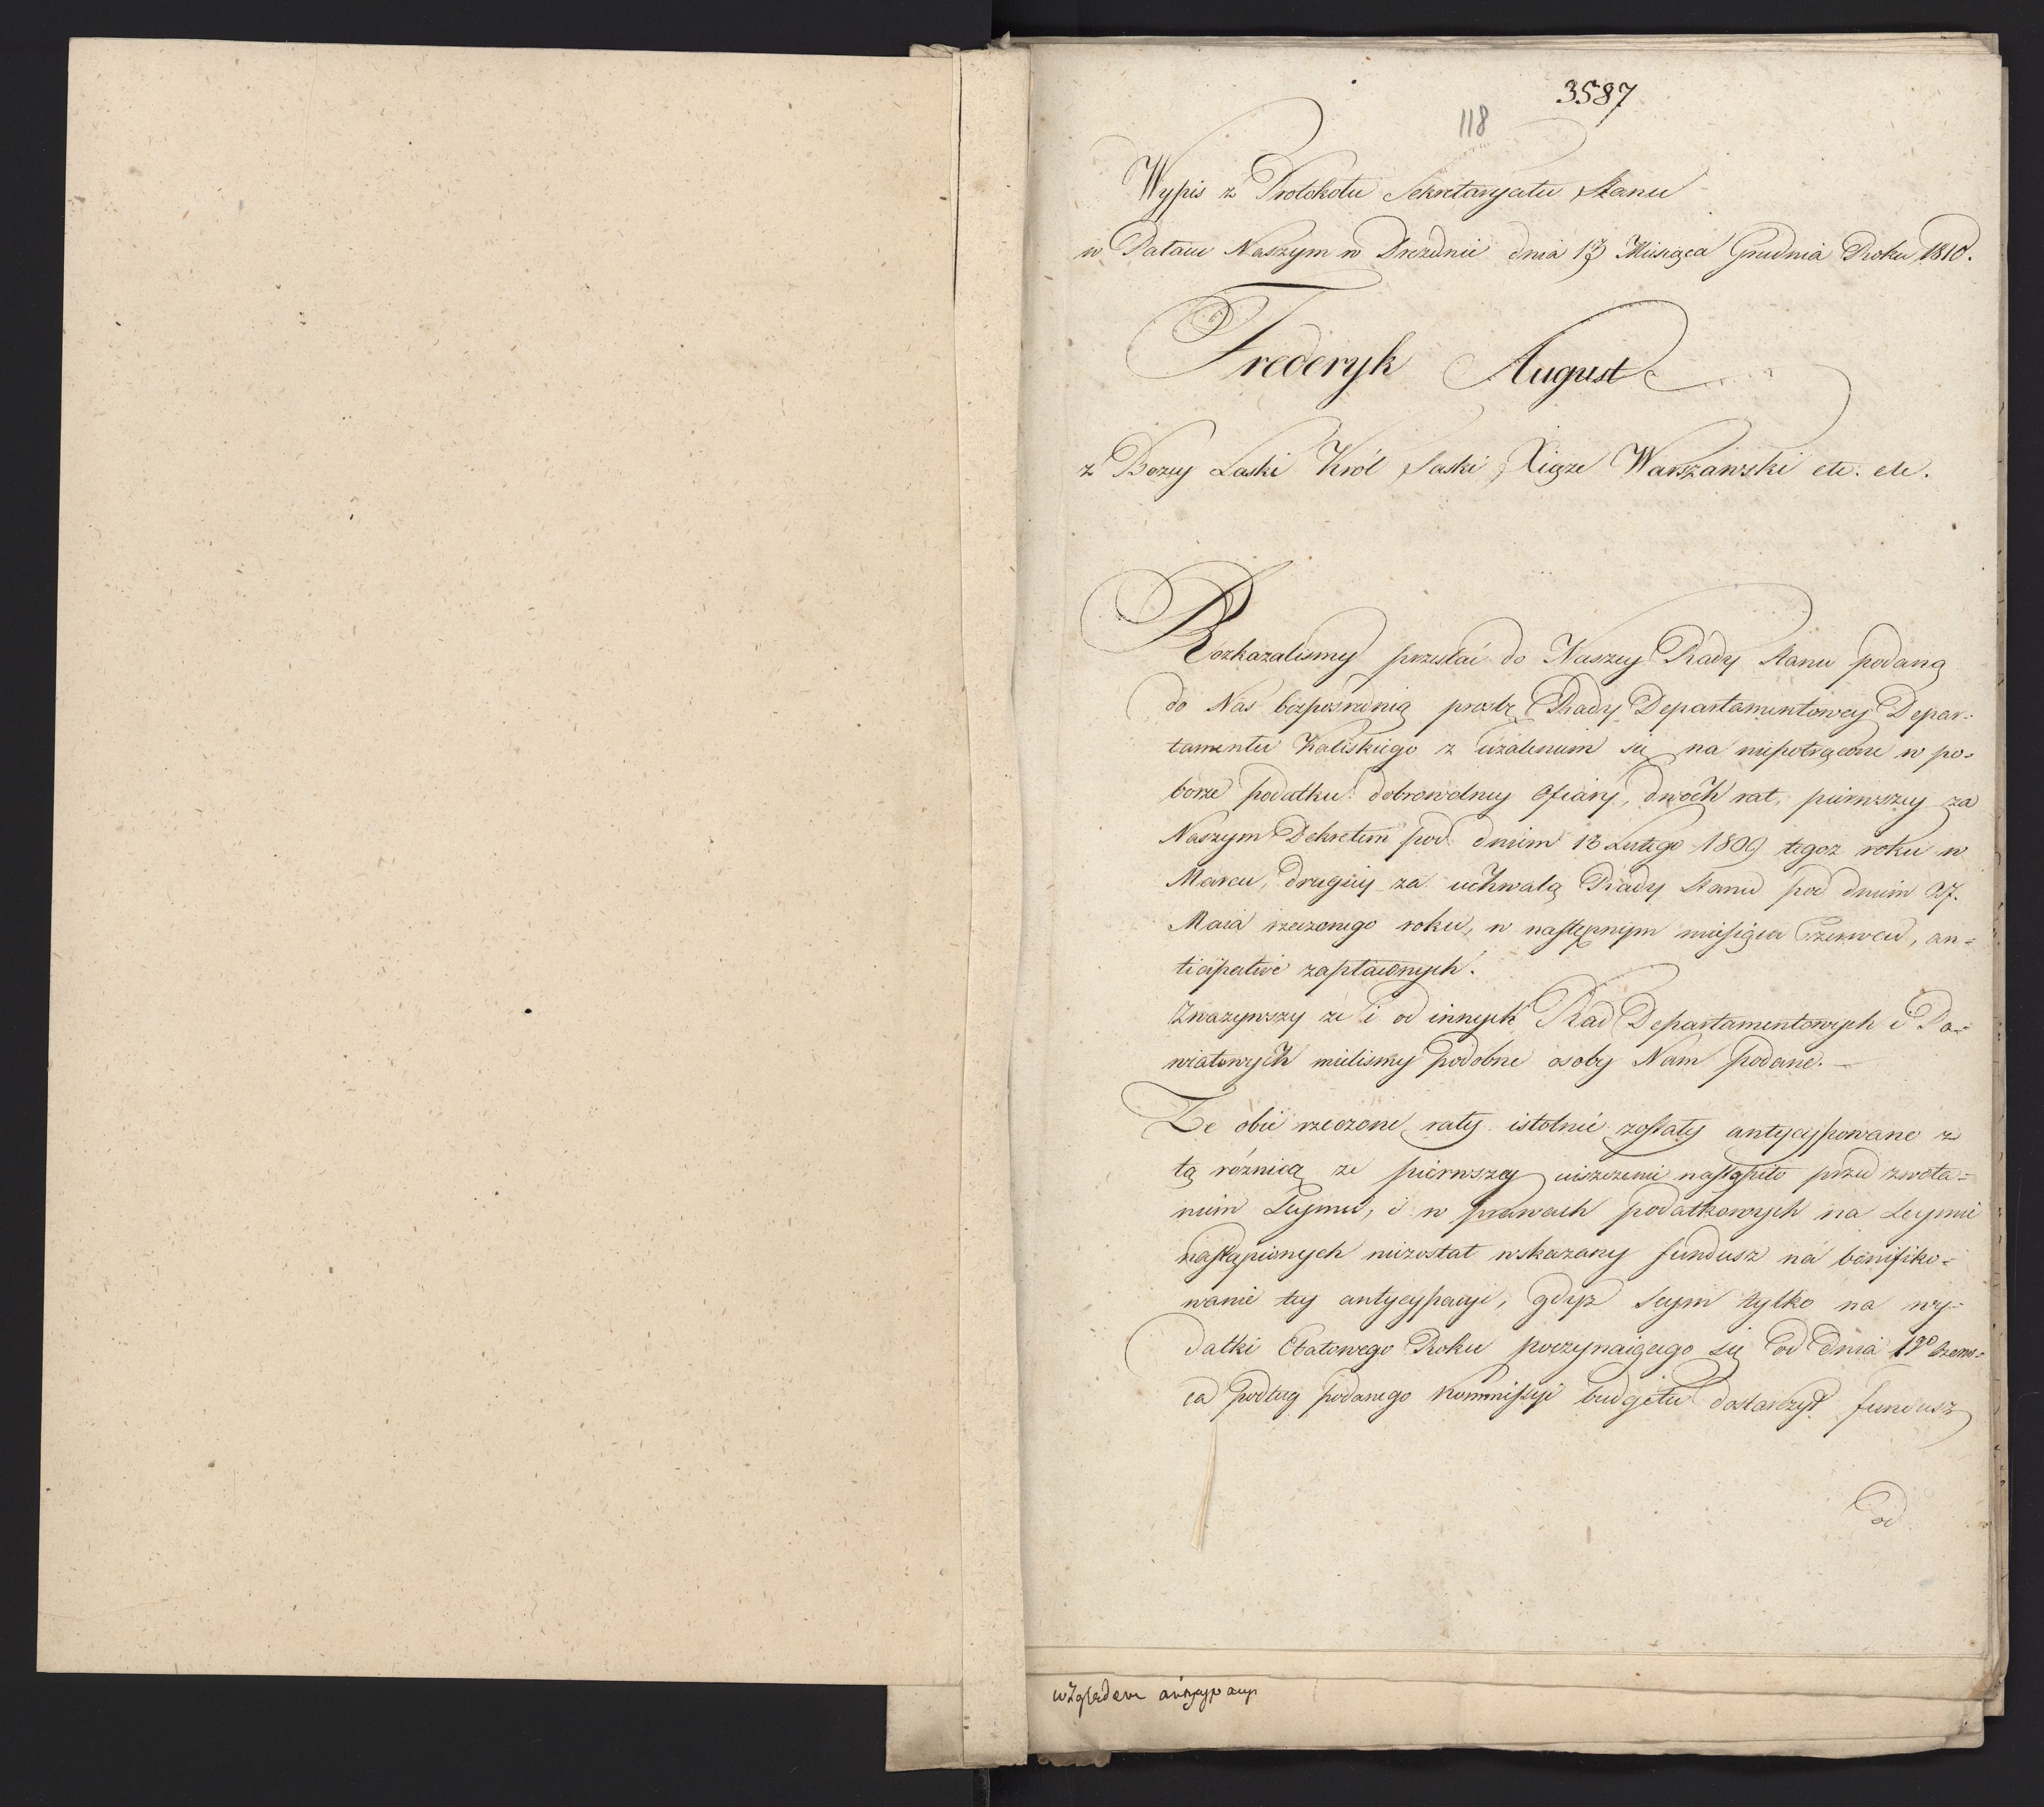 3587
118
Wypis z Protokołu Sekretaryatu Stanu
w Pałacu Naszym w Dreznie dnia 17 Miesiąca Grudnia Roku 1810.
Frederyk August
z Bozey Łaski Król Saski, Xiąże Warszawski etc. etc.
Rozkazalismy przesłać do Naszey Rady Stanu podaną
do Nas bezpośrednią prozbę Rady Departamentowey Depar=
tamentu Kaliskiego z użaleniem się na niepotrącone w po=
borze podatku dobrowolney ofiary, dwóch rat, pierwszey za
Naszym Dekretem pod dniem 13 Lutego 1809 tegoz roku w
Marcu, drugiey za uchwałą Rady Stanu pod dniem 27.
Maia rzeczonego roku, w następnym miesiącu Czerwcu, an=
ticipative zapłaconych.
Zwazywszy ze i od innych Rad Departamentowych i Po=
wiatowych mielismy podobne osoby Nam podane. –
Ze obie rzeczone raty istotnie zostały antycypowane z
tą róznicą ze pierwszey uiszczenie nastąpiło przed zwoła=
niem Seymu, i w prawach podatkowych na Seymie
nastąpionych niezostał wskazany fundusz na bonifiko=
wanie tey antycypacyi, gdyz Seym tylko na wy=
datki Etatowego Roku poczynaiącego się od dnia 1go Czerw=
ca podług podanego Kommissyi budgetu dostarczył fundusz
od
względem antycypacyi